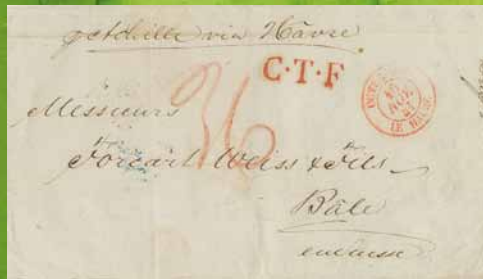 via Hâvre
C·T·F
LE HAVRE
Messieurs
36
Forcart Weiss & Fils
Bâle
en Suisse